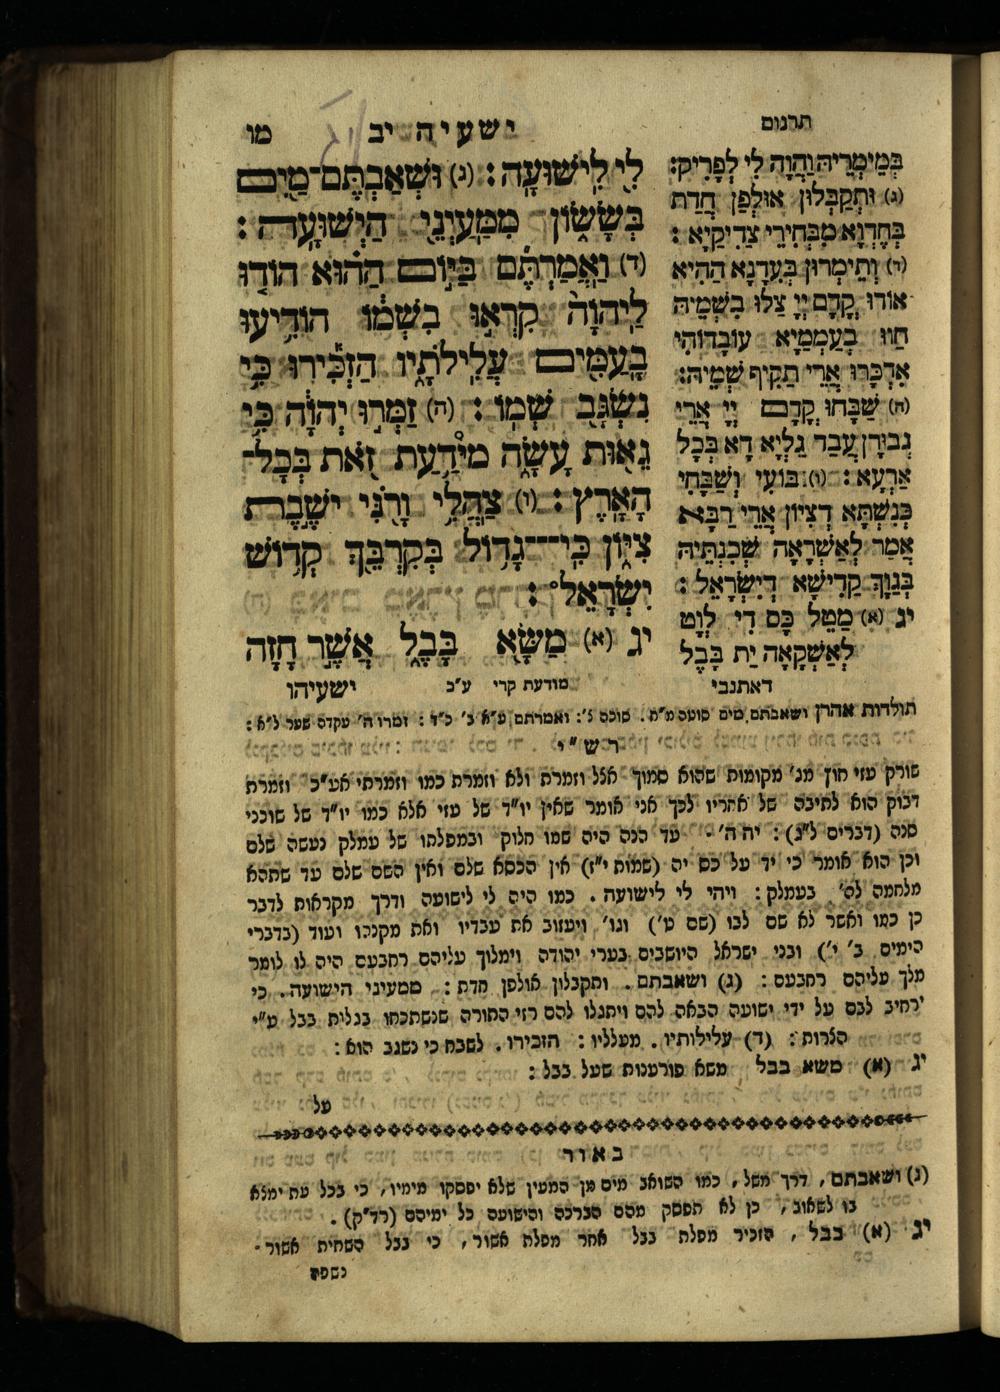 תרגום
ישעיה יב
מו
לִי לִישׁוּעָה׃ (ג) וּשְׁאַבְתֶּם־מַיִם
בְּשָׂשׂוֹן מִמַּעַיְנֵי הַיְשׁוּעָה׃
(ד) וַאֲמַרְתֶּם בַּיּוֹם הַהוּא הוֹדוּ
לַיהוָה קִרְאוּ בִשְׁמוֹ הוֹדִיעוּ
בָעַמִּים עֲלִילֹתָיו הַזְכִּירוּ כִּי
נִשְׂגָּב שְׁמוֹ׃ (ה) זַמְּרוּ יְהוָֹה כִּי
גֵאוּת עָשָׂה מידַעַת זֹאת בְּכָל־
הָאָרֶץ׃ (ו) צַהֲלִי וָרֹנִּי יֹשֶׁבֶת
צִיּוֹן כִּי־גָדוֹל בְּקִרְבֵּךְ קְדוֹשׁ
יִשְׂרָאֵל׃
יג (א) מַשָּׂא בָּבֶל אֲשֶׁר חָזָה
מודעת קרי ע״כ ישעיהו
בְּמֵימְרֵיהּ וַהֲוָה לִי לְפָרִיק׃
(ג) וּתְקַבְּלוּן אוּלְפַן חֲדַת
בְּחֶדְוָא מִבְּחִירֵי צַדִיקַיָא׃
(ד) וְתֵימְרוּן בְּעִדָנָא הַהִיא
אוֹדוּ קֳדָם יְיָ צַלּוּ בִּשְׁמֵיהּ
חַווּ בְעַמְמַיָא עוֹבָדוֹהִי
אִדְכָּרוּ אֲרֵי תַקִיף שְׁמֵיהּ׃
(ה) שַׁבָּחוּ קֳדָם יְיָ אֲרֵי
גְבוּרָן עֲבַד גַּלְיָא דָא בְּכָל
אַרְעָא׃ (ו) בּוּעִי וְשַׁבָּחִי
כְּנִשְׁתָּא דְצִיוֹן אֲרֵי רַבָּא
אֲמַר לְאַשְׁרָאָה שְׁכִנְתֵּיהּ
בְּגַוָּךְ קַדִישָׁא דְיִשְׂרָאֵל׃
יג (א) מַטַל כַּס דִי לְוָט
לְאַשְׁקָאָה יַת בָּבֶל
דאתנבי
תולדות אהרן ושאבתם מים סוטה מ״ח. סוכה נ׳: ואמרתם ע״א ב׳ כ״ד: זמרו ה׳ עקדה שער ל״א:
רש״י
שורק עזי חוץ מג׳ מקומות שהוא סמוך אצל וזמרת ולא וזמרת כמו וזמרתי אע״כ וזמרת
דבוק הוא לתיבה של אחריו לכך אני אומר שאין יו״ד של עזי אלא כמו יו״ד של שוכני
סנה (דברים ל״ג): יה ה׳. עד הנה היה שמו חלוק ובמפלתו של עמלק נעשה שלם
וכן הוא אומר כי יד על כס יה (שמות י״ז) אין הכסא שלם ואין השם שלם עד שתהא
מלחמה לה׳ בעמלק: ויהי לי לישועה. כמו היה לי לישועה ודרך מקראות לדבר
כן כמו ואשר לא שם לבו (שם ט׳) וגו׳ ויעזוב את עבדיו ואת מקנהו ועוד (בדברי
הימים ב׳ י׳) ובני ישראל היושבים בערי יהודה וימלוך עליהם רחבעם היה לו לומר
מלך עליהם רחבעם: (ג) ושאבתם. ותקבלון אולפן חדת: ממעיני הישועה. כי
ירחיב לבם על ידי ישועה הבאה להם ויתגלו להם רזי התורה שנשתכחו בגלות בבל ע״י
הצרות: (ד) עלילותיו. מעלליו: הזכירו. לשבח כי נשגב הוא:
יג (א) משא בבל משא פורענות שעל בבל:
על
באור
(ג) ושאבתם, דרך משל, כמו השואב מים מן המעין שלא יפסקו מימיו, כי בכל עת ימלא
בו לשאוב, כן לא תפסק מהם הברכה והישועה כל ימיהם (רד״ק).
יג (א) בבל, הזכיר מפלת בבל אחר מפלת אשור, כי בבל השחית אשור